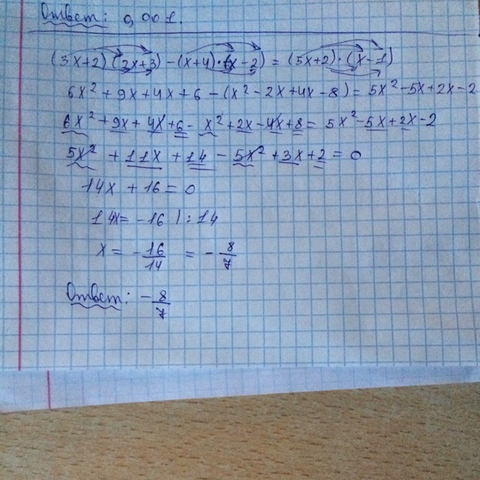 Ответ: 0,001.
(3x+2)(2x+3)-(x+4)·(x-2)=(5x+2)·(x-1)
6x²+9x+4x+6-(x²-2x+4x-8)=5x²-5x+2x-2
6x²+9x+4x+6-x²+2x-4x+8=5x²-5x+2x-2
5x²+11x+14-5x²+3x+2=0
14x+16=0
14x=-16 ):14
x=-16/14=-8/7
Ответ: -8/7